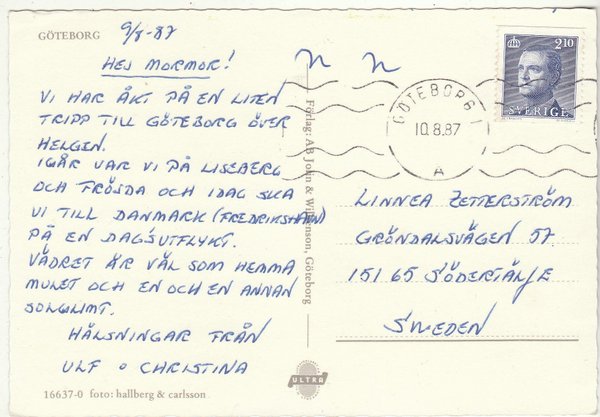 GÖTEBORG
9/8-87
HEJ MORMOR!
VI HAR ÅKT PÅ EN LITEN
TRIPP TILL GÖTEBORG ÖVER
HELGEN.
IGÅR VAR VI PÅ LISEBERG
OCH FRÖSDA OCH IDAG SKA
VI TILL DANMARK (FREDRIKSHAVN)
PÅ EN DAGSUTFLYKT.
VÄDRET ÄR VÄL SOM HEMMA
MULET OCH EN OCH EN ANNAN
SOLGLIMT.
HÄLSNINGAR FRÅN
ULF o CHRISTINA
16637-0 foto: hallberg & carlsson
Förlag: AB John & Wilhenson, Göteborg
ULTRA
2.10
SVERIGE
GÖTEBORG 1
10.8.87
A
LINNEA ZETTERSTRÖM
GRÖNDALSVÄGEN 57
151 65 SÖDERTÄLJE
SWEDEN